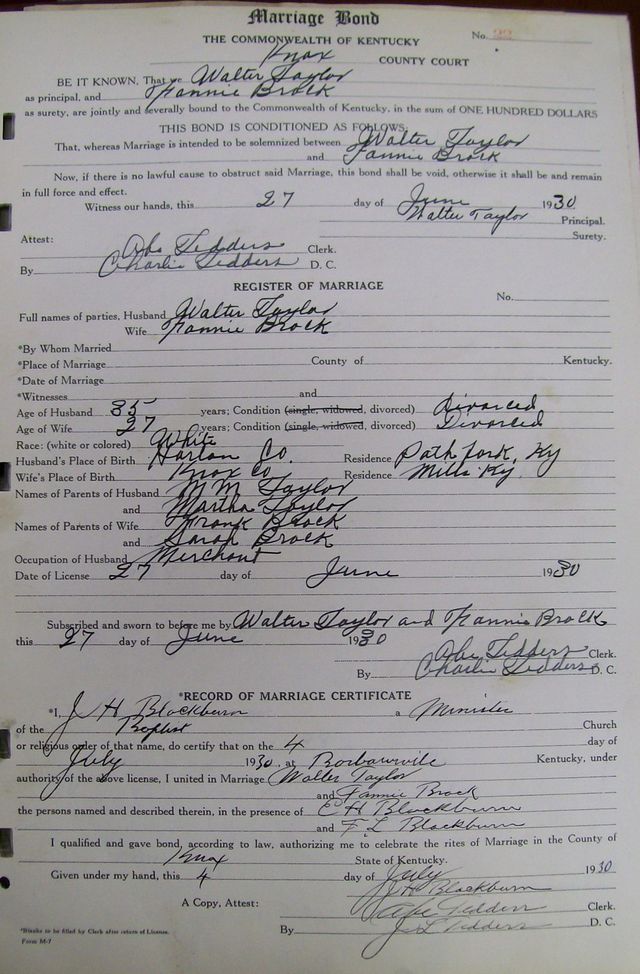 Marriage Bond
No. 22
THE COMMONWEALTH OF KENTUCKY
Knox COUNTY COURT
BE IT KNOWN, That we Walter Taylor
as principal, and Fannie Brock
as surety, are jointly and severally bound to the Commonwealth of Kentucky, in the sum of ONE HUNDRED DOLLARS
THIS BOND IS CONDITIONED AS FOLLOWS:
That, whereas Marriage is intended to be solemnized between Walter Taylor
and Fannie Brock
Now, if there is no lawful cause to obstruct said Marriage, this bond shall be void, otherwise it shall be and remain
in full force and effect.
Witness our hands, this 27 day of June 1930
Walter Taylor Principal.
Surety.
Attest:
Abe Tedders Clerk.
By Charlie Tedders D. C.
REGISTER OF MARRIAGE
No.
Full names of parties, Husband Walter Taylor
Wife Fannie Brock
*By Whom Married
*Place of Marriage County of Kentucky.
*Date of Marriage
*Witnesses and
Age of Husband 35 years; Condition (single, widowed, divorced) Divorced
Age of Wife 27 years; Condition (single, widowed, divorced) Divorced
Race: (white or colored) White
Husband's Place of Birth Harlan Co. Residence Path fork, Ky
Wife's Place of Birth Knox Co. Residence Mills Ky.
Names of Parents of Husband M M Taylor
and Martha Taylor
Names of Parents of Wife Frank Brock
and Sarah Brock
Occupation of Husband Merchant
Date of License 27 day of June 1930
Subscribed and sworn to before me by Walter Taylor and Fannie Brock
this 27 day of June 1930
Abe Tedders Clerk.
By Charlie Tedders D. C.
*RECORD OF MARRIAGE CERTIFICATE
*I, J H Blackburn a Minister
of the Baptist Church
or religious order of that name, do certify that on the 4 day of
July 1930, at Barbourville Kentucky, under
authority of the above license, I united in Marriage Walter Taylor
and Fannie Brock
the persons named and described therein, in the presence of C H Blackburn
and F L Blackburn
I qualified and gave bond, according to law, authorizing me to celebrate the rites of Marriage in the County of
Knox State of Kentucky.
Given under my hand, this 4 day of July 1930
J H Blackburn
A Copy, Attest: Abe Tedders Clerk.
By J L Tedders D. C.
*Blanks to be filled by Clerk after return of License.
Form M-7